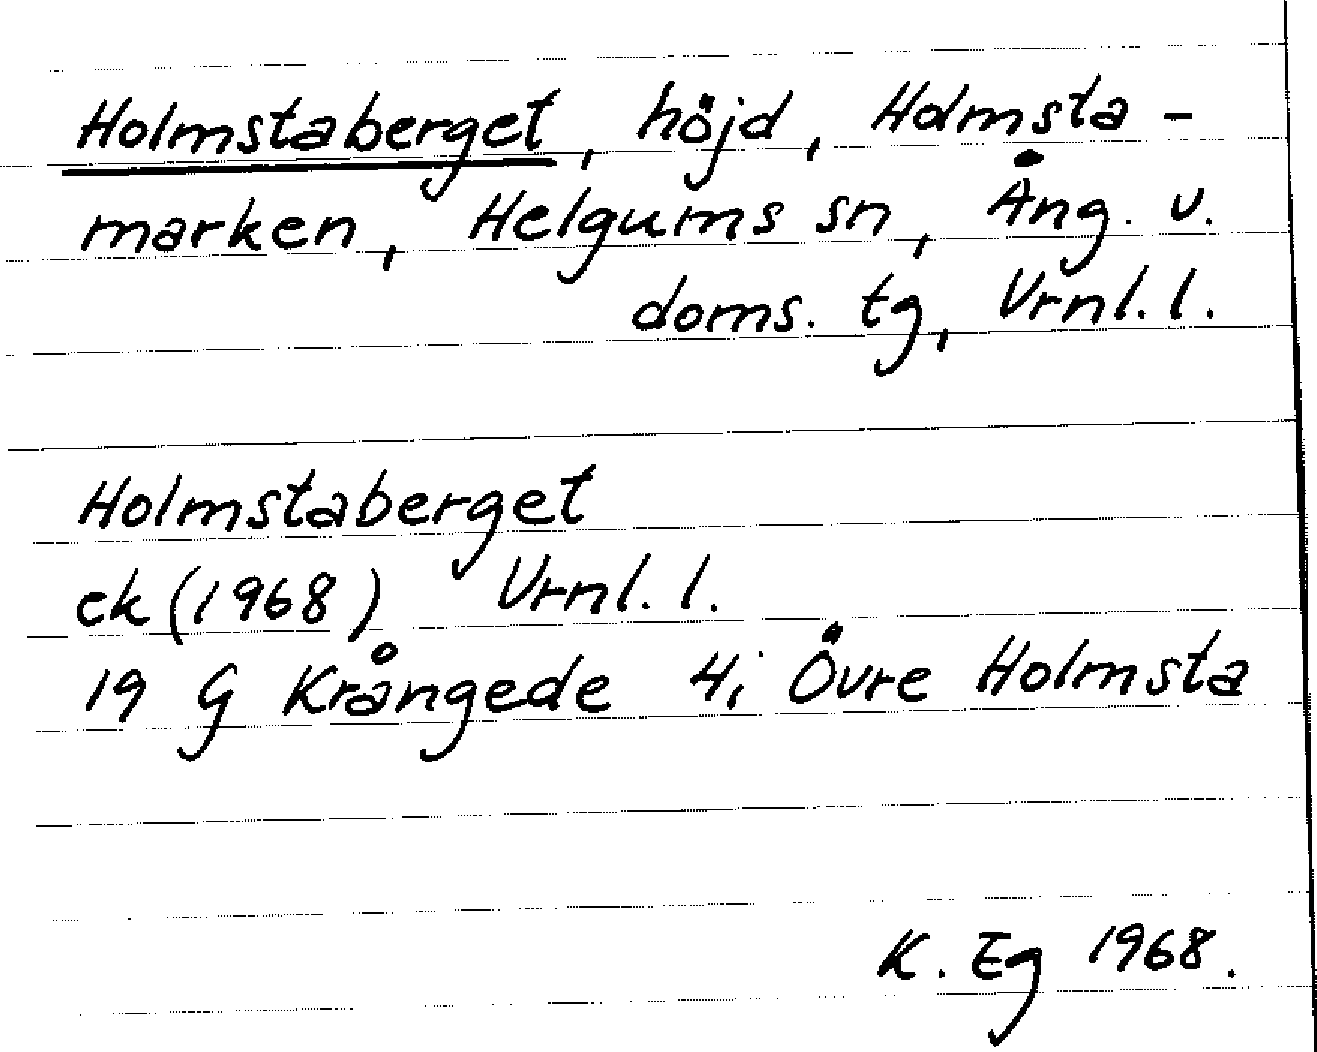 Holmstaberget, höjd, Holmsta-
marken, Helgums sn, Ång. v.
doms. tg, Vrnl. l.
Holmstaberget
ek (1968) Vrnl. l.
19 G Krångede 4i Övre Holmsta
K. Eg 1968.